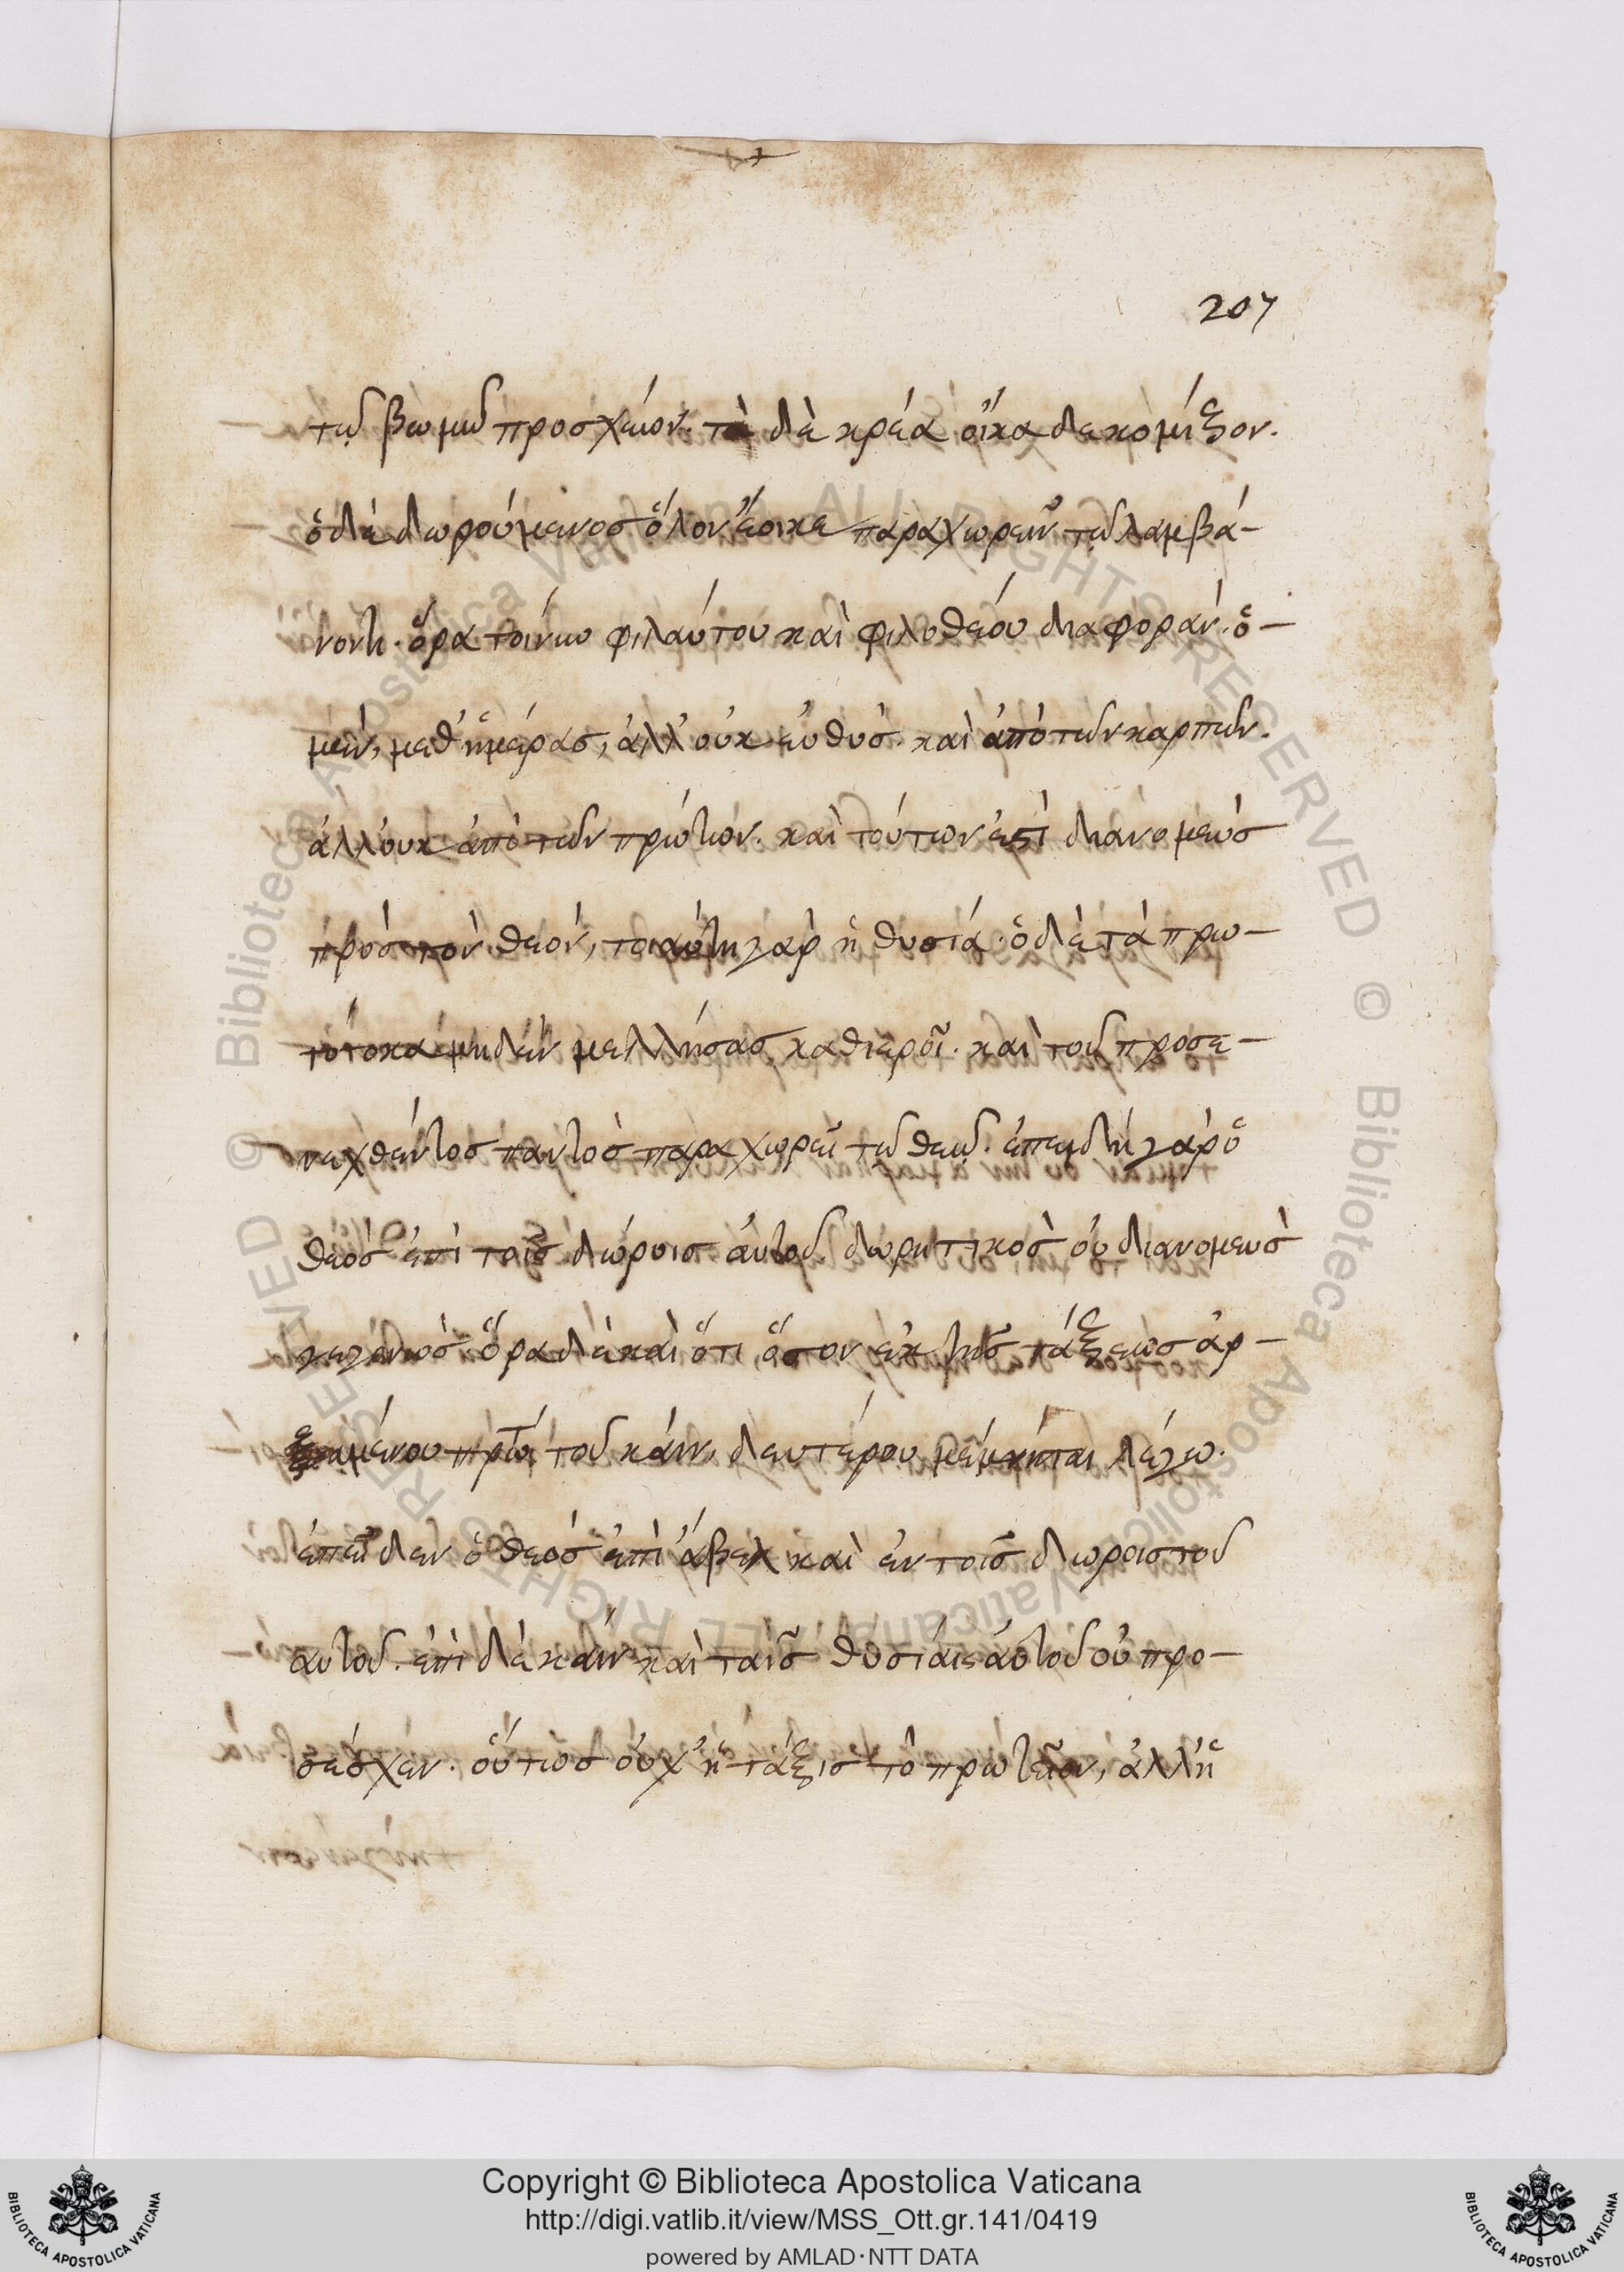 207
τῷ βωμῷ προσχέων. τὰ δὲ κρέα οἴκαδε κομίζον.
ὁ δὲ δωρούμενος ὅλον ἔοικε παραχωρεῖν τῷ λαμβά-
νοντι. ὅρα τοίνυν φιλαύτου καὶ φιλοθέου διαφοράν. ὁ-
μὲν, μεθ' ἡμέρας, ἀλλ' οὐκ εὐθύς. καὶ ἀπὸ τῶν καρπῶν.
ἀλλ' οὐκ ἀπὸ τῶν πρώτων. καὶ τούτων ἐστὶ διανομεὺς
πρὸς τὸν θεόν, τοιαύτη γὰρ ἡ θυσία. ὁ δὲ τὰ πρω-
τότοκα μηδὲν μελλήσας καθιεροῖ. καὶ τοῦ προσε-
νεχθέντος παντὸς παραχωρεῖ τῷ θεῷ. ἐπειδὴ γὰρ ὁ
θεὸς ἐπὶ τοῖς δώροις αὐτοῦ δωρητικὸς οὐ διανομεὺς
γεγονώς. ὅρα δὲ καὶ ὅτι ὅσον ἐκ τῆς τάξεως ἀρ-
ξαμένου πρώτου τοῦ κάιν, δευτέρου μέμνηται λέγω.
ἐπεῖδεν ὁ θεὸς ἐπὶ ἄβελ καὶ ἐν τοῖς δώροις τοῦ
αὐτοῦ. ἐπὶ δὲ κάιν καὶ ταῖς θυσίαις αὐτοῦ οὐ προ-
σέσχεν. οὕτως οὐχ' ἡ τάξις τὸ πρωτεῖον, ἀλλ' ἡ
Copyright © Biblioteca Apostolica Vaticana
http://digi.vatlib.it/view/MSS_Ott.gr.141/0419
powered by AMLAD·NTT DATA